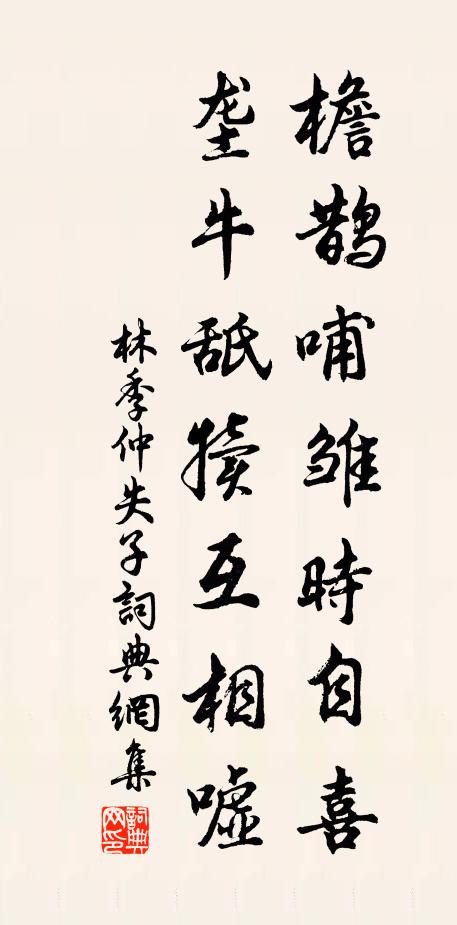 檐鹊哺雏時自喜
垄牛舐犢互相噓
林季仲失子詞典網集
詞典网印